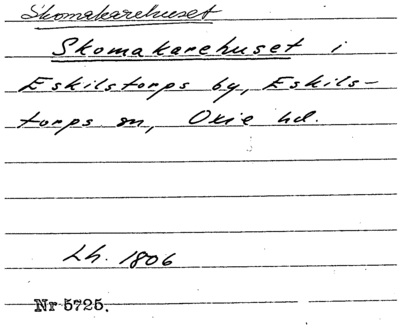 Skomakarehuset
Skomakarehuset i
Eskilstorps by, Eskils-
torps sn, Oxie hd.
Lh. 1806
Nr 5725.